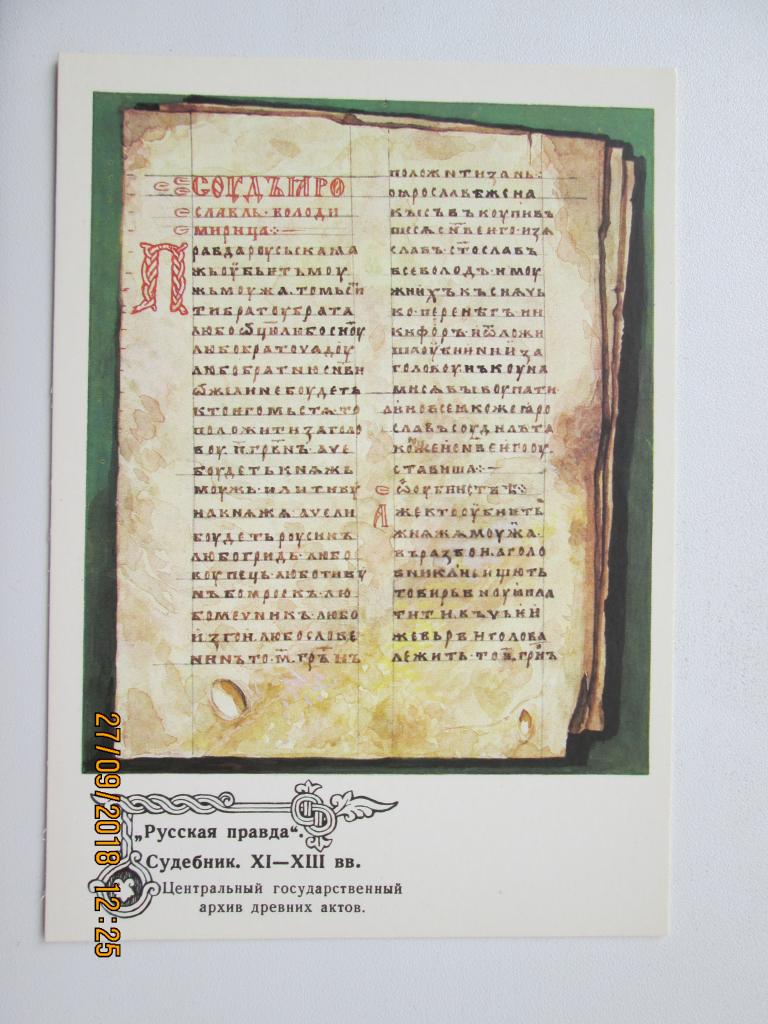 СОУДЪꙖРО
СЛАВЛЬ·ВОЛОДИ
МИРИЦА:—
ПРАВДАРОУСЬСКАꙖА
ЖЬОУБЬЕТЬМОУ
ЖЬМОУЖА·ТОМЬСТИ
ТИБРАТОУБРАТА
ЛЮБОѾЦЮЛЮБОСНОУ
ЛЮБОБРАТОУЧАДОУ
ЛЮБОБРАТНЮСНВИ
КТОꙖГОМЬСТѦ·ТО
ПОЛОЖИТИЗАГОЛО
ВОУ·П҃·ГРВНЪ·АЧЕ
БОУДЕТЬКНѦЖЬ
МОУЖЬ·ИЛИТИВУ
НАКНѦЖА·АЧЕЛИ
БОУДЕТЬРОУСИНЪ
ЛЮБОГРИДЬ·ЛЮБО
КОУПЕЦЬ·ЛЮБОТИВУ
НЪБОꙖРОСКЪ·ЛЮ
БОМЕЧНИКЪ·ЛЮБО
ИЗГОИ·ЛЮБОСЛОВЕ
НИНЪТО·М҃·ГРВНЪ
ПОЛОЖИТИЗАНЬ:
ПОꙖРОСЛАВѢЖЕПА
КЫСЪВЪКОУПИВЪ
ШЕСѦСНВЕѤГО·ИЗѦ
СЛАВЪ·СТОСЛАВЪ
ВСЕВОЛОДЪ·ИМОУ
ЖИИХЪКЪСНѦЧЬ
КО·ПЕРЕНѢГЪ·НИ
КИФОРЪ·ИѾЛОЖИ
ШАОУБИЕНИѤЗА
ГОЛОВОУ·НЪКОУНА
МИСѦВЫКОУПАТИ
АИНОВСЕꙖКОЖЕꙖРО
СЛАВЪСОУДИЛЪТА
КОЖЕИСНВЕѤГООУ
СТАВИША:—
ѾОУБИИСТВѢ:
АЖЕКТООУБИЕТЬ
КНѦЖАМОУЖА·
ВЪРАЗБОИ·АГОЛО
ВНИКАНЕИЩЮТЬ
ТОВИРЬВНОУЮПЛА
ТИТИ·ВЪЧЬЕИ
ЖЕВЬРВИГОЛОВА
ЛЕЖИТЬ·ТОП҃·ГРВНЪ
„Русская правда“.
Судебник. XI—XIII вв.
Центральный государственный
архив древних актов.
27/09/2018 12:25